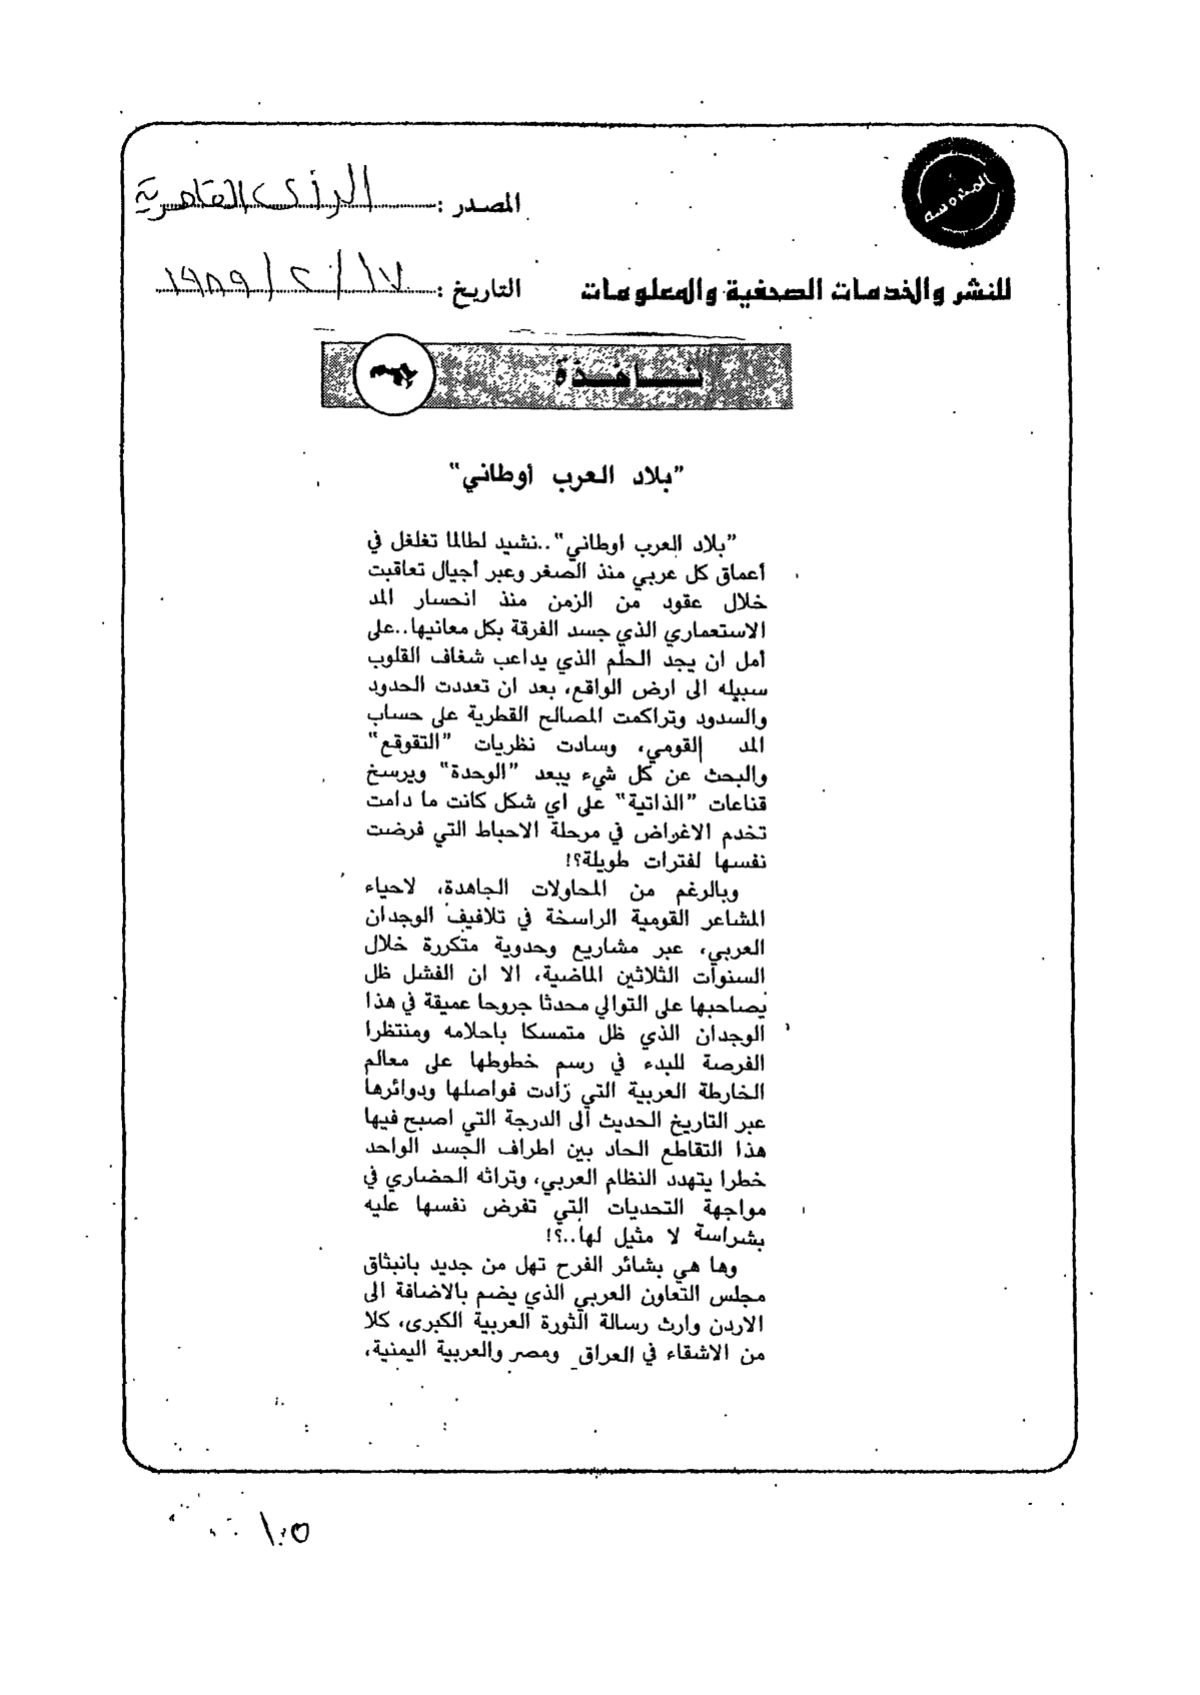 المحروسة
المصدر : الرأى القاهرية
للنشر والخدمات الصحفية والمعلومات
التاريخ : ١٧ / ٢ / ١٩٨٩
نافذة
"بلاد العرب أوطاني"
"بلاد العرب اوطاني"..نشيد لطالما تغلغل في
أعماق كل عربي منذ الصغر وعبر أجيال تعاقبت
خلال عقود من الزمن منذ انحسار المد
الاستعماري الذي جسد الفرقة بكل معانيها..على
أمل ان يجد الحلم الذي يداعب شغاف القلوب
سبيله الى ارض الواقع، بعد ان تعددت الحدود
والسدود وتراكمت المصالح القطرية على حساب
المد القومي، وسادت نظريات "التقوقع"
والبحث عن كل شيء يبعد "الوحدة" ويرسخ
قناعات "الذاتية" على اي شكل كانت ما دامت
تخدم الاغراض في مرحلة الاحباط التي فرضت
نفسها لفترات طويلة؟!
وبالرغم من المحاولات الجاهدة، لاحياء
المشاعر القومية الراسخة في تلافيف الوجدان
العربي، عبر مشاريع وحدوية متكررة خلال
السنوات الثلاثين الماضية، الا ان الفشل ظل
يصاحبها على التوالي محدثا جروحا عميقة في هذا
الوجدان الذي ظل متمسكا باحلامه ومنتظرا
الفرصة للبدء في رسم خطوطها على معالم
الخارطة العربية التي زادت فواصلها ودوائرها
عبر التاريخ الحديث الى الدرجة التي اصبح فيها
هذا التقاطع الحاد بين اطراف الجسد الواحد
خطرا يتهدد النظام العربي، وتراثه الحضاري في
مواجهة التحديات التي تفرض نفسها عليه
بشراسة لا مثيل لها..؟!
وها هي بشائر الفرح تهل من جديد بانبثاق
مجلس التعاون العربي الذي يضم بالاضافة الى
الاردن وارث رسالة الثورة العربية الكبرى، كلا
من الاشقاء في العراق ومصر والعربية اليمنية،
١٠٥